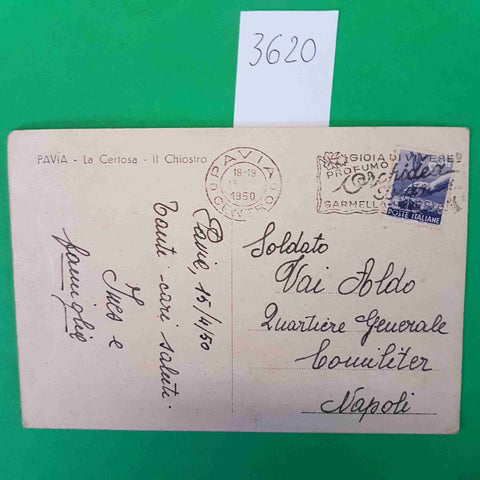 3620
PAVIA - La Certosa - Il Chiostro
PAVIA
18-19
15
1950
GIOIA DI VIVERE
PROFUMO
Orchidea
GARMELLA
POSTE ITALIANE
Pavia, 15/4/50
Tanti cari saluti.
Ines e
famiglia
Soldato
Vai Aldo
Quartiere Generale
Comiliter
Napoli